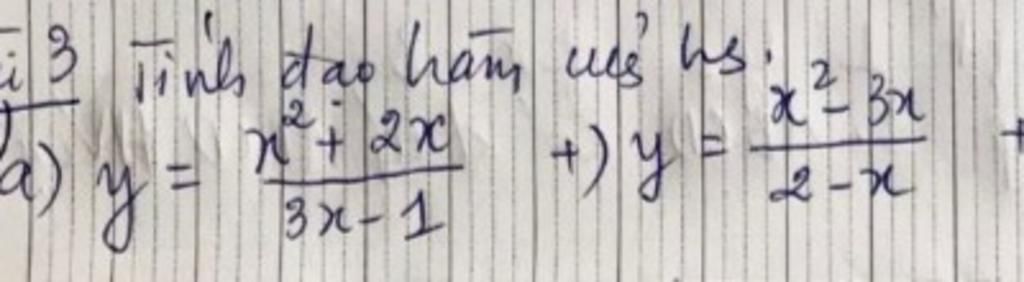 i 3 Tính đạo hàm của hs.
a) y = \frac{x^2 + 2x}{3x - 1} +) y = \frac{x^2 - 3x}{2 - x} +